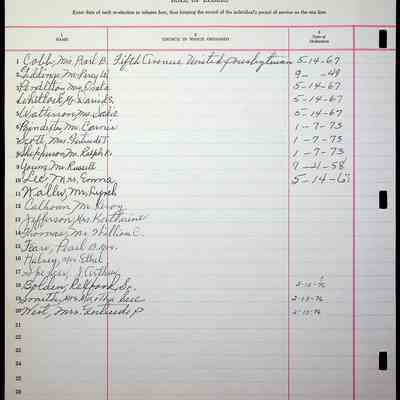 ROLL OF ELDERS
Enter date of each re-election in column four, thus keeping the record of the individual's period of service on the one line.
1 NAME 2 CHURCH IN WHICH ORDAINED 3 Date of Ordination
1 Cobb, Mrs. Pearl B. Fifth Avenue United Presbyterian 5-14-67
2 Giddings, Mr. Percy W. 9- -48
3 Pendleton, Mr. Osceola 5-14-67
4 Whitlock, Mr. 5-14-67
5 Watterson, Mrs. Sadie 5-14-67
6 Poindexter, Mr. 1-7-73
7 Scott, Mrs. Gertrude 1-7-73
8 Shipperson, Mr. Ralph R. 1-7-73
9 Young, Mr. Russell 9-21-58
10 Lee, Mrs. Emma 5-14-67
11 Waller, Mr. Lynch
12 Calhoun, Mr. Leroy
13 Jefferson, Mrs. Katherine
14 Thomas, Mr. William C.
15 Pearl B. Mrs.
16 Halsey, Mrs. Ethel
17 Spencer, J. Arthur
18 Bolden, Sr. 2-15-76
19 Smith, Mrs. Martha 2-15-76
20 West, Mrs. Gertrude P. 2-15-76
21
22
23
24
25
26